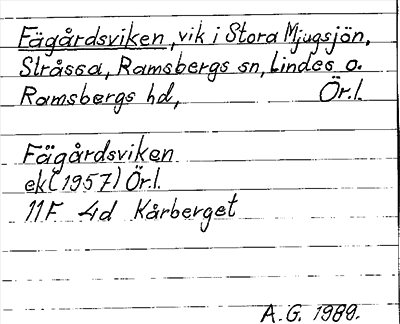 Fägårdsviken, vik i Stora Mjugsjön,
Stråssa, Ramsbergs sn, Lindes o.
Ramsbergs hd, Ör.l.
Fägårdsviken
ek (1957) Ör.l.
11F 4d Kårberget
A.G. 1989.